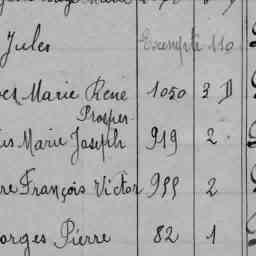 Jules Exempté 110
Marie René 1050 3 D
Prosper
is Marie Joseph 919 2
re François Victor 955 2
orges Pierre 82 1